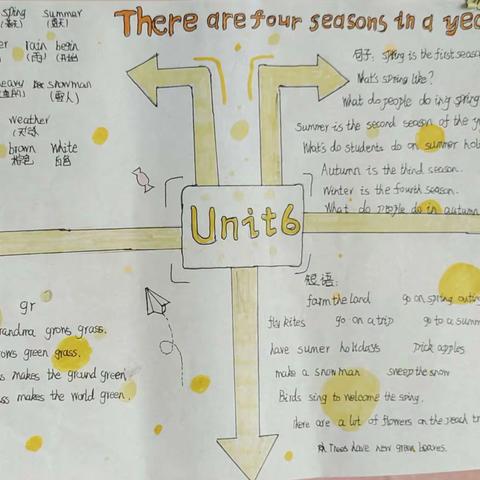 There are four seasons in a yea
spring summer
(春天) (夏天)
er rain begin
(雨) (开始)
heavy snowman
(雪人)
weather
(天气)
brown white
棕色 白色
句子: Spring is the first seaso
What's spring like?
What do people do ing spring
Summer is the second season of the ye
What's do students do on summer holi
Autumn is the third season.
Winter is the fourth season.
What do people do in autumn
Unit6
gr
randma grows grass.
rows green grass.
s makes the ground green
ss makes the world green.
短语:
farm the land go on spring outing
fly kites go on a trip go to a summ
have sumer holidays Pick apples
make a snowman sweep the snow
Birds sing to welcome the sping.
There are a lot of flowers on the peach tr
Trees have new green leaves.